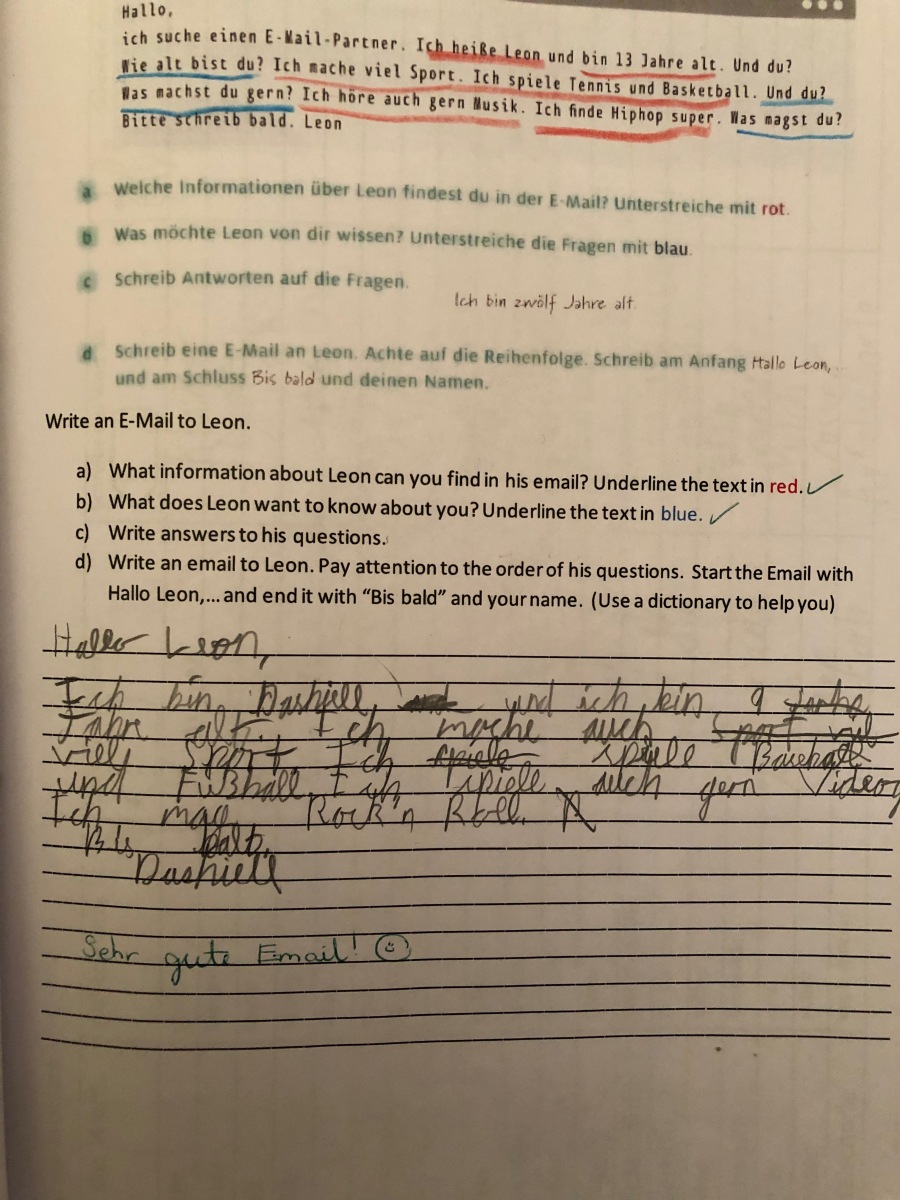 Hallo,
ich suche einen E-Mail-Partner. Ich heiße Leon und bin 13 Jahre alt. Und du?
Wie alt bist du? Ich mache viel Sport. Ich spiele Tennis und Basketball. Und du?
Was machst du gern? Ich höre auch gern Musik. Ich finde Hiphop super. Was magst du?
Bitte schreib bald. Leon
a Welche Informationen über Leon findest du in der E-Mail? Unterstreiche mit rot.
b Was möchte Leon von dir wissen? Unterstreiche die Fragen mit blau.
c Schreib Antworten auf die Fragen.
Ich bin zwölf Jahre alt.
d Schreib eine E-Mail an Leon. Achte auf die Reihenfolge. Schreib am Anfang Hallo Leon, ..
und am Schluss Bis bald und deinen Namen.
Write an E-Mail to Leon.
a) What information about Leon can you find in his email? Underline the text in red.
b) What does Leon want to know about you? Underline the text in blue.
c) Write answers to his questions.
d) Write an email to Leon. Pay attention to the order of his questions. Start the Email with
Hallo Leon,... and end it with "Bis bald" and your name. (Use a dictionary to help you)
Hallo Leon,
Ich bin Dashiell, und ich bin 9
Jahre alt. Ich mache auch
viel Sport. Ich spiele Baseball
und Fußball. Ich spiele auch gern
Ich mag Rock'n Roll.
Bis balb.
Dashiell
Sehr gute Email!